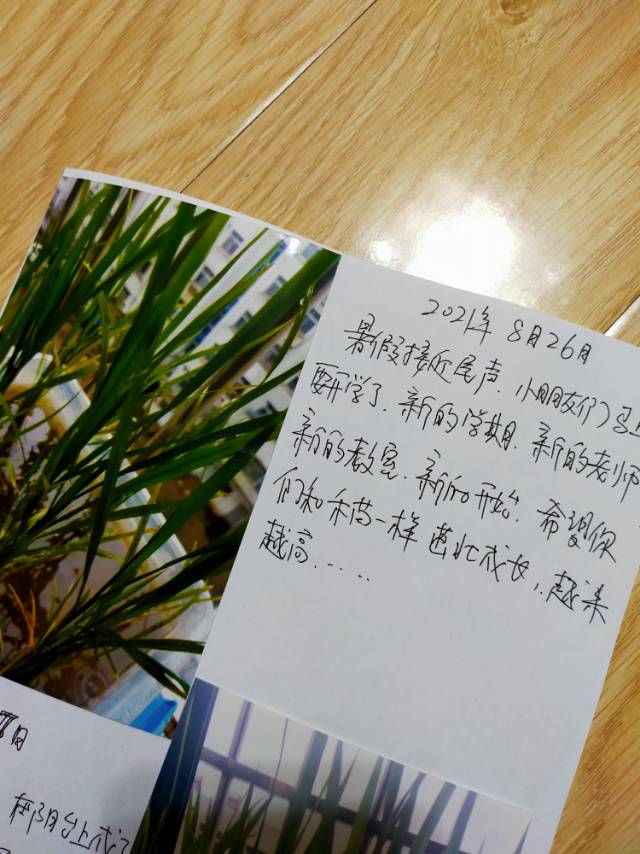 2021年 8月26日
暑假接近尾声、小朋友们马上
要开学了、新的学期、新的老师
新的教室、新的开始、希望你
们和禾苗一样茁壮成长,越来
越高……
月
在阳台上成了